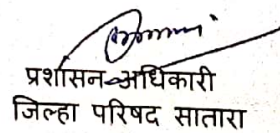 प्रशासन अधिकारी
जिल्हा परिषद सातारा